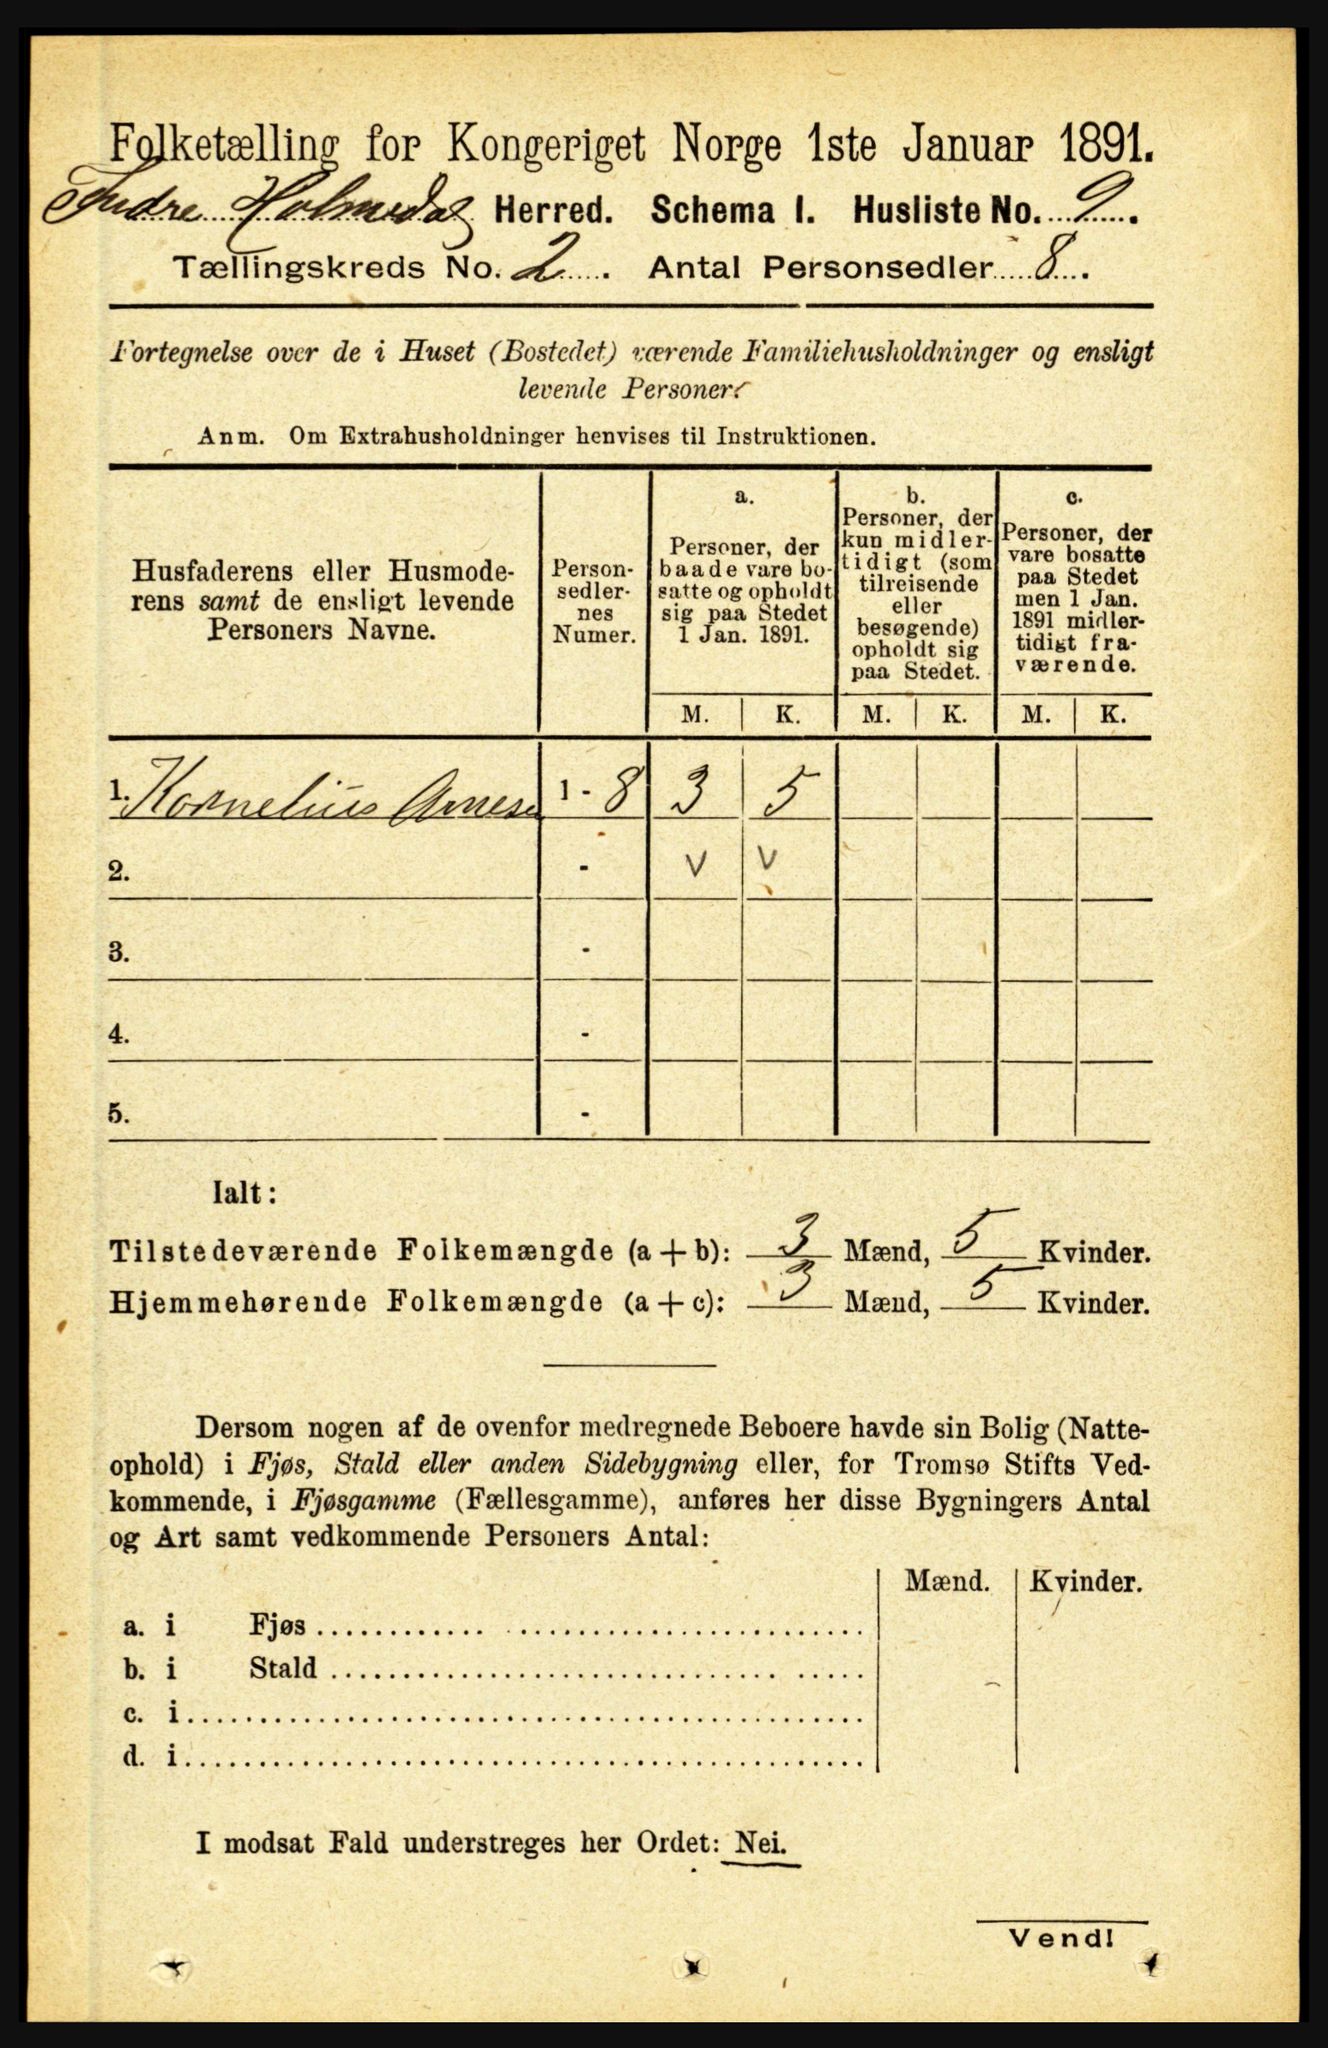 Folketælling for Kongeriget Norge 1ste Januar 1891.
Indre Holmedal Herred. Schema I. Husliste No. 9.
Tællingskreds No. 2. Antal Personsedler 8.
Fortegnelse over de i Huset (Bostedet) værende Familiehusholdninger og ensligt
levende Personer.
Anm. Om Extrahusholdninger henvises til Instruktionen.
Husfaderens eller Husmode-
rens samt de ensligt levende
Personers Navne.
Person-
sedler-
nes
Numer.
a.
Personer, der
baade vare bo-
satte og opholdt
sig paa Stedet
1 Jan. 1891.
b.
Personer, der
kun midler-
tidigt (som
tilreisende
eller
besøgende)
opholdt sig
paa Stedet.
c.
Personer, der
vare bosatte
paa Stedet
men 1 Jan.
1891 midler-
tidigt fra-
værende.
M. K. M. K. M. K.
1. Kornelius Arnesen 1 - 8 3 5
2. - v v
3. -
4. -
5. -
Ialt:
Tilstedeværende Folkemængde (a + b): 3 Mænd, 5 Kvinder.
Hjemmehørende Folkemængde (a + c): 3 Mænd, 5 Kvinder.
Dersom nogen af de ovenfor medregnede Beboere havde sin Bolig (Natte-
ophold) i Fjøs, Stald eller anden Sidebygning eller, for Tromsø Stifts Ved-
kommende, i Fjøsgamme (Fællesgamme), anføres her disse Bygningers Antal
og Art samt vedkommende Personers Antal:
Mænd. Kvinder.
a. i Fjøs
b. i Stald
c. i
d. i
I modsat Fald understreges her Ordet: Nei.
Vend!